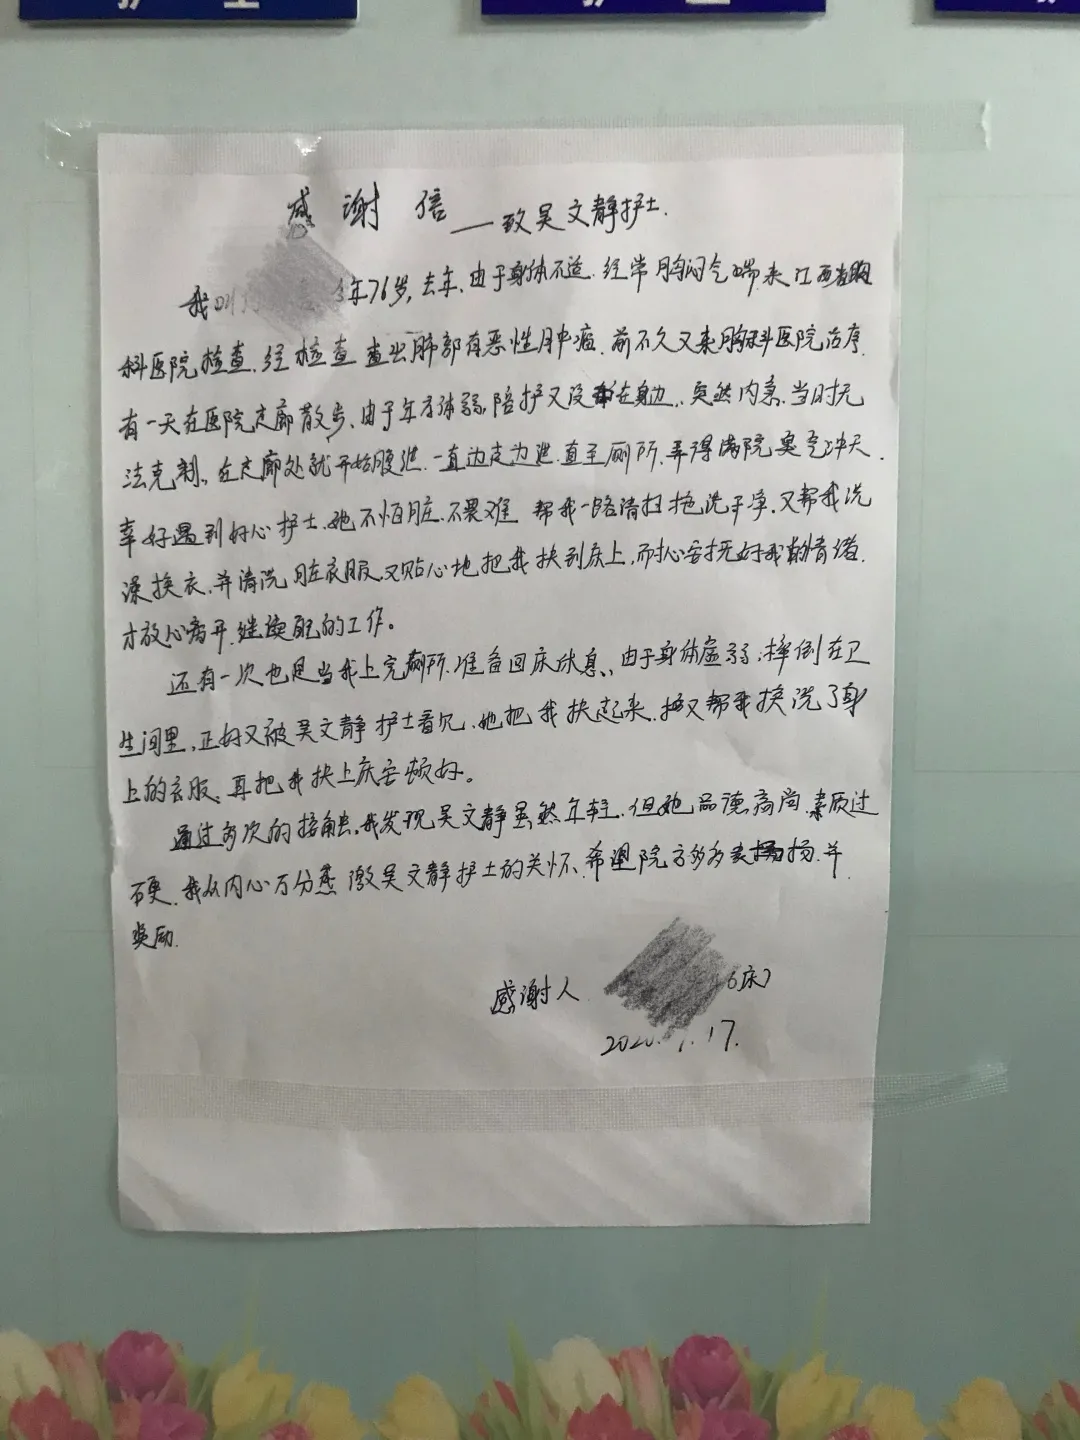 护士
护士
护
感谢信——致吴文静护士.
我叫 年76岁,去年,由于身体不适.经常胸闷气喘.来江西省胸
科医院检查.经检查查出肺部有恶性肿瘤.前不久又来胸科医院治疗.
有一天在医院走廊散步、由于年老体弱,陪护又没在身边.突然内急.当时无
法克制。在走廊处就开始腹泄.一直边走边泄.直至厕所.弄得满院臭气冲天.
幸好遇到好心护士.她不怕脏.不畏难 帮我一路清扫拖洗干净.又帮我洗
澡换衣.并清洗脏衣服.又贴心地把我扶到床上,耐心安抚好我的情绪.
才放心离开.继续她的工作。
还有一次也是当我上完厕所.准备回床休息、由于身体虚弱,摔倒在卫
生间里,正好又被吴文静护士看见.她把我扶起来.又帮我换洗了身
上的衣服、再把我扶上床安顿好。
通过多次的接触.我发现吴文静虽然年轻.但她品德高尚.素质过
硬.我从内心万分感激吴文静护士的关怀、希望院方多多表扬.并
奖励.
感谢人 6床)
2020. .17.